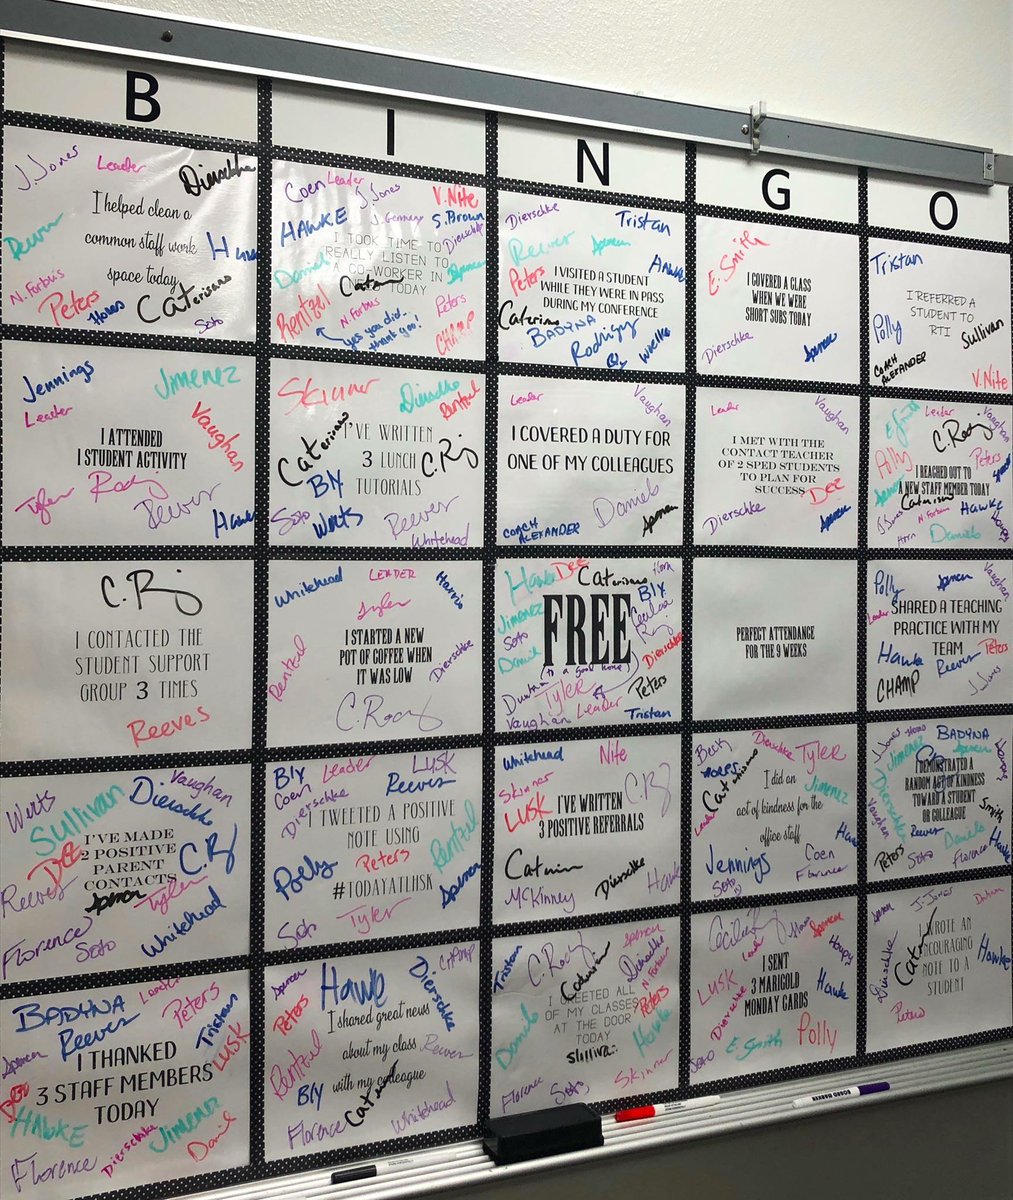 B I N G O
J. Jones
Leader
Dierschke
I helped clean a
common staff work
space today
N. Forbus
Peters
Caterisano
Soto
Coen
Leader
J. Jones
V. Nite
HAWKE
S. Brown
Dierschke
I TOOK TIME TO
REALLY LISTEN TO
A CO-WORKER IN
TODAY
Spencer
Rentzel
N. Forbus
Peters
CHAMP
yes you did.
thank you!
Dierschke
Tristan
Reever
Spencer
Peters
Hawke
I VISITED A STUDENT
WHILE THEY WERE IN PASS
DURING MY CONFERENCE
BADYNA
E. Smith
I COVERED A CLASS
WHEN WE WERE
SHORT SUBS TODAY
Dierschke
Spencer
Tristan
I REFERRED A
STUDENT TO
RTI
Polly
Sullivan
COACH
ALEXANDER
V. Nite
Jennings
Jimenez
Leader
Vaughan
I ATTENDED
1 STUDENT ACTIVITY
Tyler
Reever
Hawke
Skinner
Dierschke
Rentzel
I'VE WRITTEN
3 LUNCH
TUTORIALS
Bly
Soto
Werts
Reever
Whitehead
Leader
Vaughan
I COVERED A DUTY FOR
ONE OF MY COLLEAGUES
COACH
ALEXANDER
Daniels
Spencer
Leader
Vaughan
I MET WITH THE
CONTACT TEACHER
OF 2 SPED STUDENTS
TO PLAN FOR
SUCCESS
DEE
Dierschke
Spencer
E. Smith
Leader
Vaughan
Polly
Peters
I REACHED OUT TO
A NEW STAFF MEMBER TODAY
J. Jones
N. Forbus
Hawke
Horn
Daniels
I CONTACTED THE
STUDENT SUPPORT
GROUP 3 TIMES
Reeves
Whitehead
LEADER
Harris
Tyler
I STARTED A NEW
POT OF COFFEE WHEN
IT WAS LOW
Rentzel
Dierschke
C. Rodrig
Hawke
DEE
Caterisano
Jimenez
Bly
Soto
FREE
(to a good home)
Dierschke
Tyler
Peters
Vaughan
Leader
Tristan
PERFECT ATTENDANCE
FOR THE 9 WEEKS
Polly
Spencer
Vaughan
Leader
SHARED A TEACHING
PRACTICE WITH MY
TEAM
Hawke
Reever
Peters
CHAMP
J. Jones
Werts
Sullivan
Dierschke
Vaughan
DEE
I'VE MADE
2 POSITIVE
PARENT
CONTACTS
Reever
Spencer
Tyler
Florence
Soto
Whitehead
Bly
Leader
LUSK
Coen
Reever
Dierschke
I TWEETED A POSITIVE
NOTE USING
Peters
#TODAYATLHSK
Polly
Rentzel
Spencer
Soto
Tyler
Whitehead
Nite
Skinner
LUSK
I'VE WRITTEN
3 POSITIVE REFERRALS
McKinney
Dierschke
Hawke
Dierschke
Tyler
I did an
act of kindness for the
office staff
Jimenez
Leader
Jennings
Soto
Coen
Florence
J. Jones
BADYNA
Jimenez
Spencer
I DEMONSTRATED A
RANDOM ACT OF KINDNESS
TOWARD A STUDENT
OR COLLEAGUE
Dierschke
Vaughan
Smith
Peters
Reever
Daniels
Soto
Florence
Hawke
BADYNA
Leader
Peters
Reever
Tristan
Spencer
I THANKED
3 STAFF MEMBERS
TODAY
LUSK
DEE
HAWKE
Florence
Dierschke
Jimenez
Daniel
Spencer
Hawke
Dierschke
CHAMP
Peters
I shared great news
about my class
with my colleague
Rentzel
Reever
Bly
Florence
Whitehead
Tristan
Spencer
Dierschke
N. Forbus
I GREETED ALL
OF MY CLASSES
AT THE DOOR
TODAY
Peters
Daniels
Sullivan
Hawke
Florence
Soto
Skinner
Leader
Spencer
I SENT
3 MARIGOLD
MONDAY CARDS
LUSK
Dierschke
Hawke
Soto
E. Smith
Polly
J. Jones
Spencer
I WROTE AN
ENCOURAGING
NOTE TO A
STUDENT
Dierschke
Hawke
Peters
BOARD MARKER